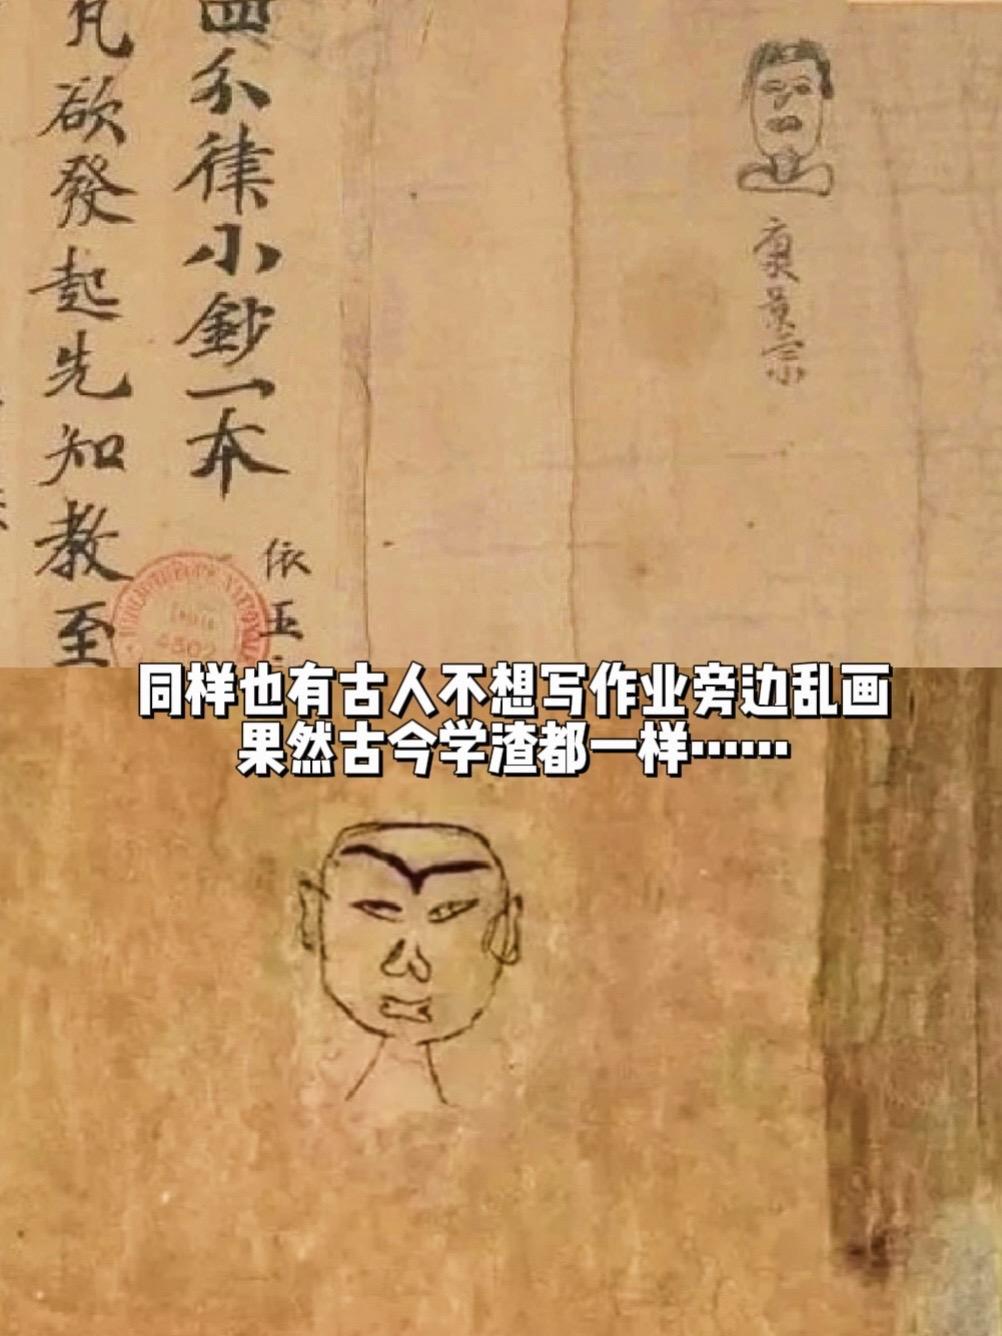 四分律小鈔一本
依五
凡欲發起先知教至
康景宗
同样也有古人不想写作业旁边乱画
果然古今学渣都一样……